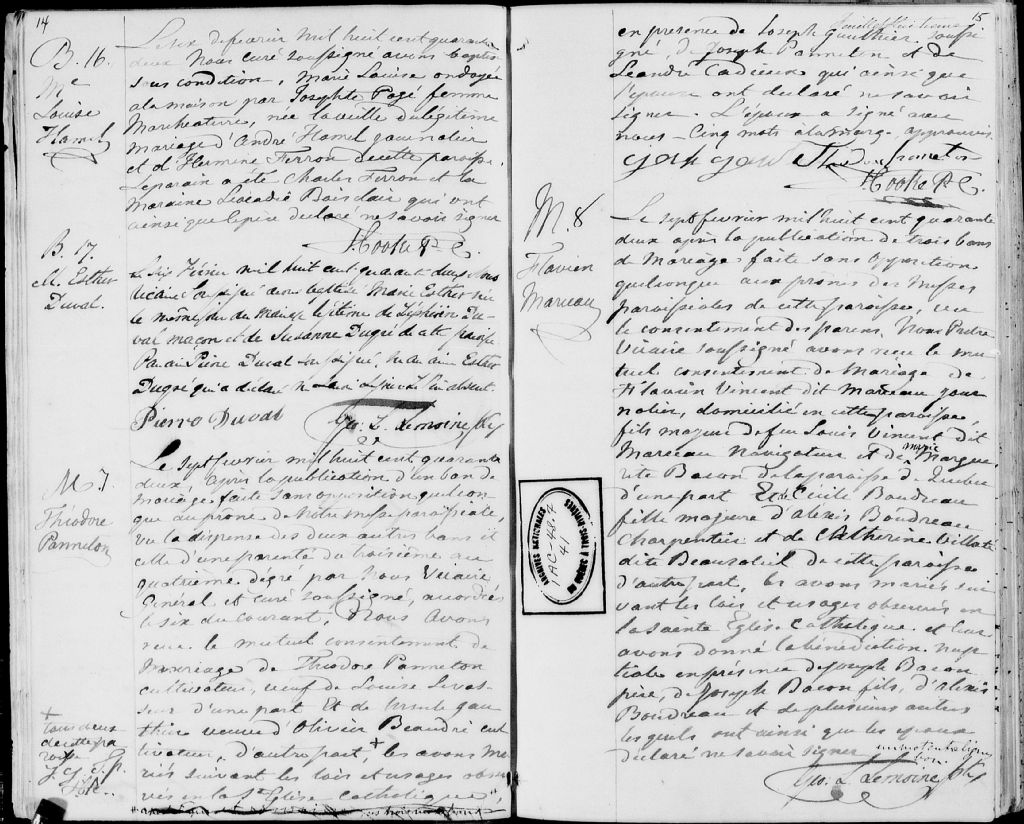 14
B. 16.
Me
Louise
Hamel
Le six de fevrier mil huit cent quarante
deux Nous curé soussigné avons baptisé
sous condition, Marie Louise ondoyée
a la maison par Josephte Pagé femme
Marcheterre, née la veille du légitime
Mariage d'André Hamel journalier
et d'Hermine Ferron de cette paroisse.
Le parain a été Charles Ferron et la
Maraine Leocadie Boisclair qui ont
ainsi que le père declaré ne savoir signer
S. Cooke P. C.
B. 17.
M. Esther
Duval.
Le Six Fevrier mil huit cent quarante deux Nous
vicaire soussigné avons baptisé Marie Esther née
le même jour du Mariage légitime de Zéphirin Du-
val maçon et de Susanne Dugré de cette paroisse
Parain Pierre Duval soussigné, Maraine Esther
Dugré qui a déclaré ne savoir signer le père absent.
Pierre Duval
Geo. L. Lemoine Ptr
M. 7.
Théodore
Panneton
Le sept fevrier mil huit cent quarante
deux, après la publication d'un ban de
mariage faite sans opposition quelcon-
que au prône de Notre messe paroissiale,
vu la dispense des deux autres bans et
celle d'une parenté du troisième au
quatrième dégré par Nous Vicaire
Général et curé soussigné, accordées
le six du courant, Nous avons
reçu le mutuel consentement de
Mariage de Théodore Panneton
cultivateur, veuf de Louise Levas-
seur d'une part Et de Ursule Gau
thier veuve d'Olivier Beaudré cul
tivateur, d'autre part, + les avons ma-
riés suivant les lois et usages obser
vés en la Ste Eglise Catholique,
+
tous deux
de cette pa
roisse
15
en presence de Joseph Gauthier soussi
gné, de Joseph Panneton et de
Leandre Cadieux qui ainsi que
l'épouse ont déclaré ne savoir
signer. L'époux a signé avec
nous - Cinq mots à la marge approuvés
S. Cooke P. C.
M. 8
Flavien
Mareau
Le sept fevrier mil huit cent quarante
deux après la publication de trois bans
de Mariage faite sans opposition
quelconque aux prônes des Messes
paroissiales de cette paroisse, vu
le consentement des parens, Nous Prètre
Vicaire soussigné avons reçu le mu
tuel consentement de Mariage de
Flavien Vincent dit Mareau jour
nalier, domicilié en cette paroisse,
fils majeur de feu Louis Vincent dit
Mareau Navigateur et de Marie Margue
rite Bacon de la paroisse de Québec
d'une part Et Cecile Boudreau
fille majeure d'Alexis Boudreau
Charpentier et de Catherine Villate
dite Beausoleil de cette paroisse
d'autre part, les avons mariés sui
vant les lois et usages observés en
la Sainte Eglise Catholique et leur
avons donné la bénédiction nup
tiale en présence de Joseph Bacon
père, de Joseph Bacon fils, d'Alexis
Boudreau et de plusieurs autres
lesquels ont ainsi que les époux
déclaré ne savoir signer
Geo. L. Lemoine Ptr
ARCHIVES NATIONALES
IAC-48-7
41